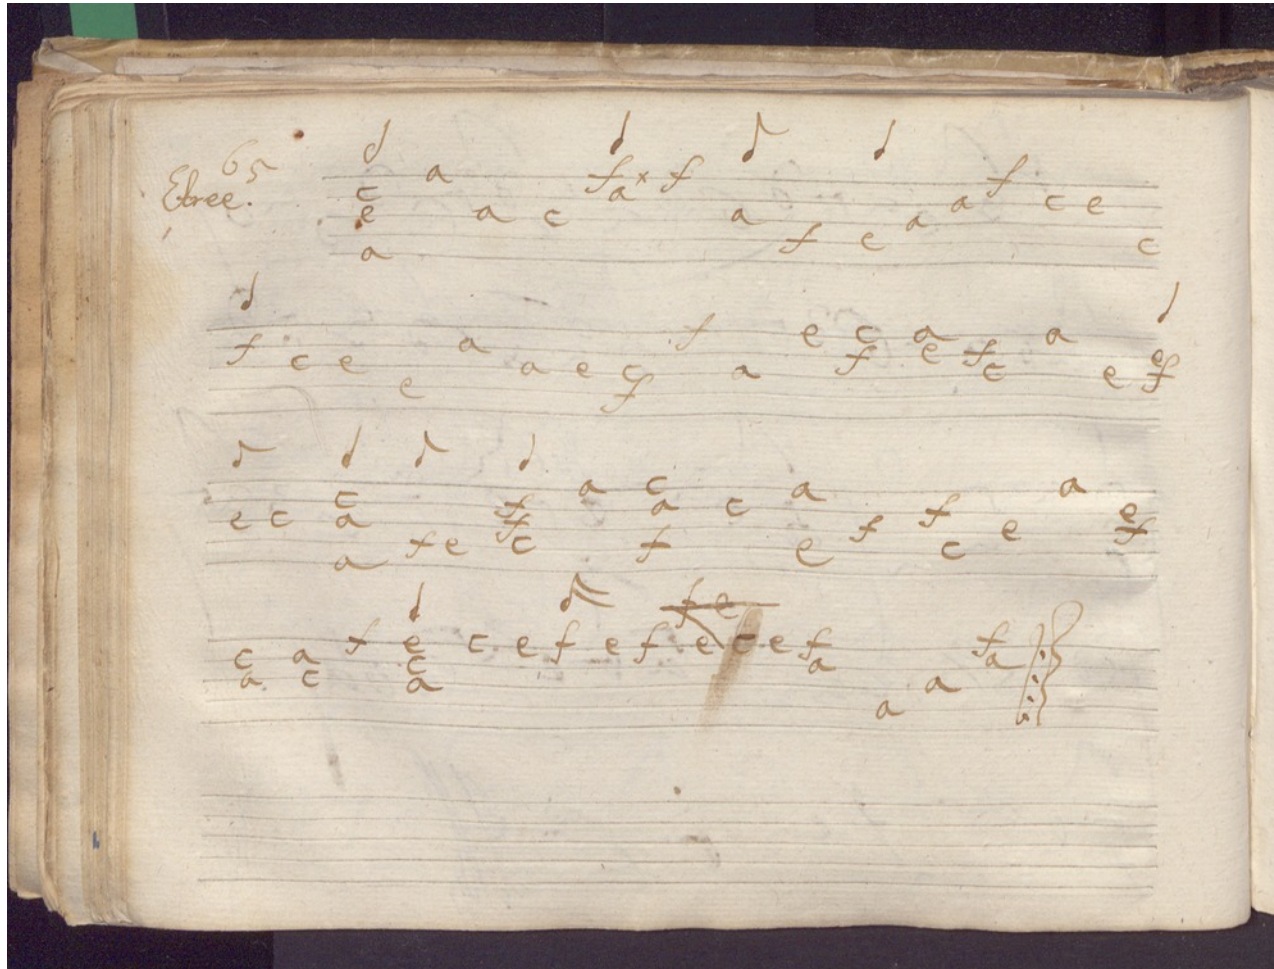 65
Etree.
c e a a a c f a x f a f e a a f c e c
f c e e a a e c f f a e c f a e f c a e e f
e c c a a f e f f c a c a f c a e f f c e a e f
f e
c a a c f e c a c e f e f e c e f a a a f a